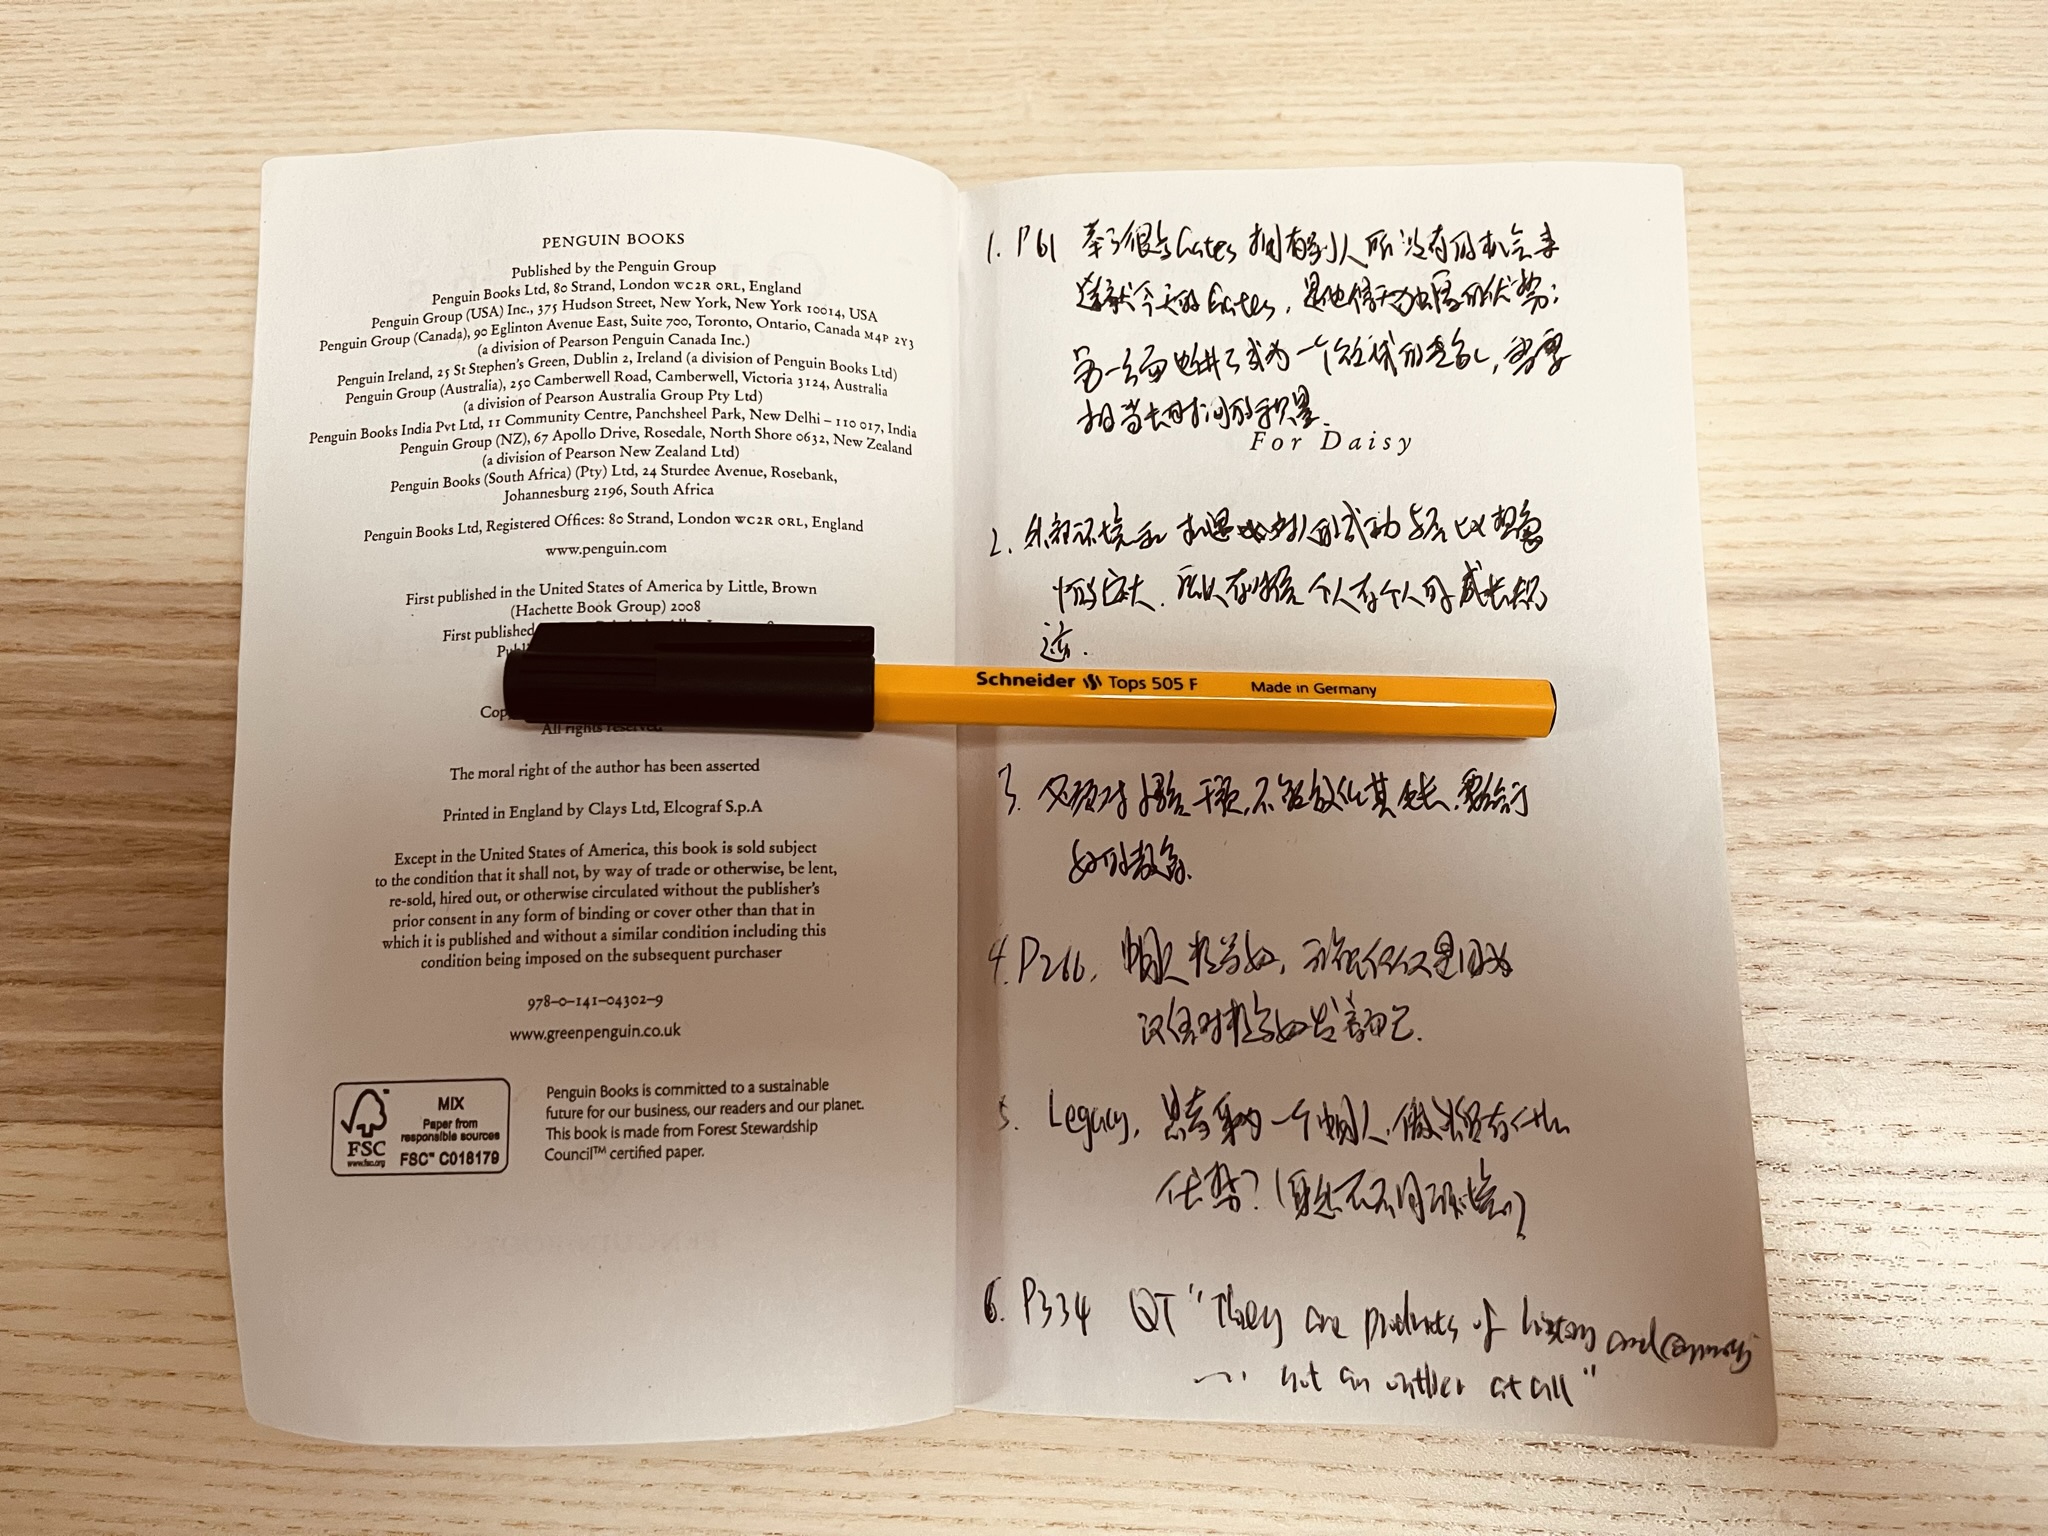 PENGUIN BOOKS
Published by the Penguin Group
Penguin Books Ltd, 80 Strand, London WC2R 0RL, England
Penguin Group (USA) Inc., 375 Hudson Street, New York, New York 10014, USA
Penguin Group (Canada), 90 Eglinton Avenue East, Suite 700, Toronto, Ontario, Canada M4P 2Y3
(a division of Pearson Penguin Canada Inc.)
Penguin Ireland, 25 St Stephen's Green, Dublin 2, Ireland (a division of Penguin Books Ltd)
Penguin Group (Australia), 250 Camberwell Road, Camberwell, Victoria 3124, Australia
(a division of Pearson Australia Group Pty Ltd)
Penguin Books India Pvt Ltd, 11 Community Centre, Panchsheel Park, New Delhi – 110 017, India
Penguin Group (NZ), 67 Apollo Drive, Rosedale, North Shore 0632, New Zealand
(a division of Pearson New Zealand Ltd)
Penguin Books (South Africa) (Pty) Ltd, 24 Sturdee Avenue, Rosebank,
Johannesburg 2196, South Africa
Penguin Books Ltd, Registered Offices: 80 Strand, London WC2R 0RL, England
www.penguin.com
First published in the United States of America by Little, Brown
(Hachette Book Group) 2008
First published
All rights reserved
The moral right of the author has been asserted
Printed in England by Clays Ltd, Elcograf S.p.A
Except in the United States of America, this book is sold subject
to the condition that it shall not, by way of trade or otherwise, be lent,
re-sold, hired out, or otherwise circulated without the publisher's
prior consent in any form of binding or cover other than that in
which it is published and without a similar condition including this
condition being imposed on the subsequent purchaser
978-0-141-04302-9
www.greenpenguin.co.uk
MIX
Paper from
responsible sources
FSC™ C018179
FSC
www.fsc.org
Penguin Books is committed to a sustainable
future for our business, our readers and our planet.
This book is made from Forest Stewardship
Council™ certified paper.
1. P61 Gates 拥有别人所没有的机会来
造就今天的Gates, 是他得天独厚的优势;
另一方面 成为一个 领域的专家, 需要
相当长时间的积累.
For Daisy
2. 外部环境和机遇 对人的成功 比想象
中的 大. 所以 个人有个人的成长轨
迹.
Schneider Tops 505 F Made in Germany
3. 必须对 干预, 不能放任其 长, 要给予
好的教育.
4. P266. 中国人 数学好, 可能仅仅是因为
汉语对数学好
5. Legacy, 思考 一个中国人,
优势? (身处 不同 环境)
6. P334 QT "They are products of history and community
... not an outlier at all"